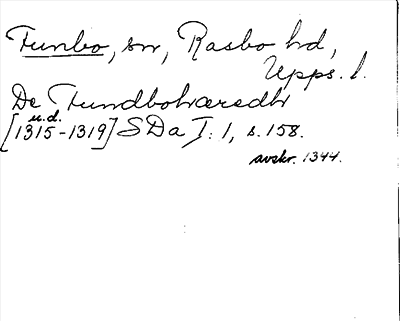 Funbo, sn, Rasbo hd,
Upps. l.
De Fundbohæredh
u.d.
[1315-1319] SDa I: 1, s. 158.
avskr. 1344.